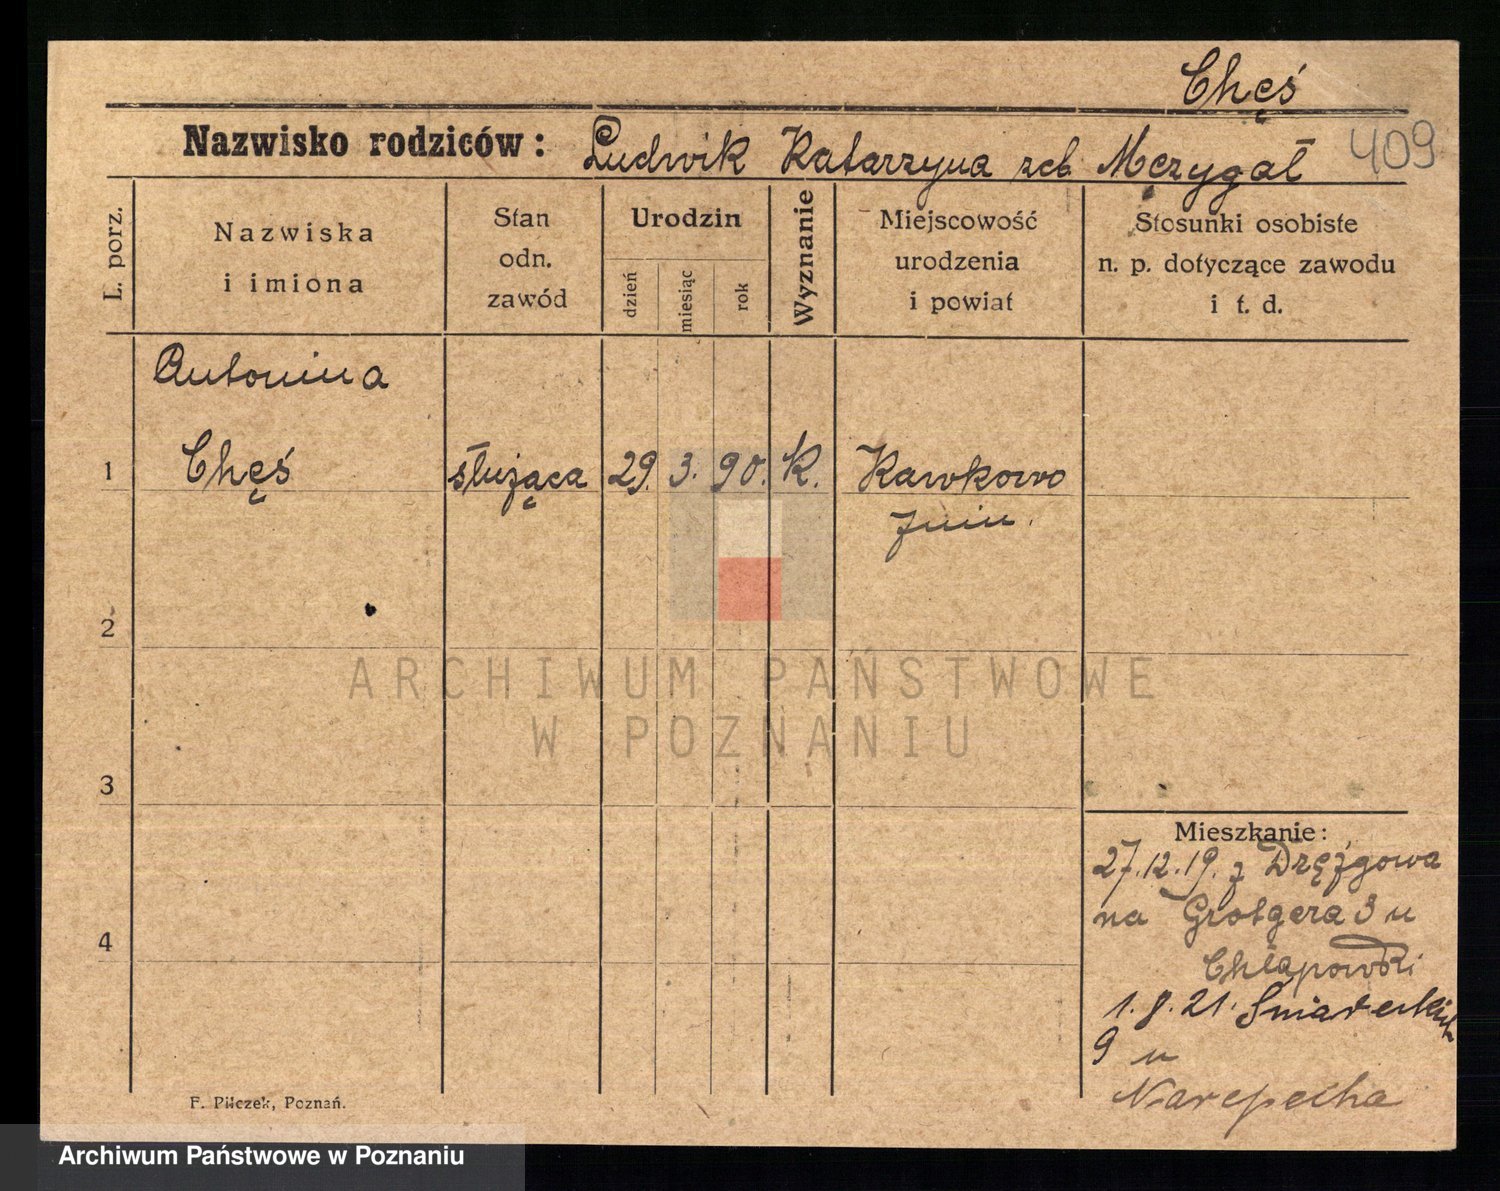 Chęś
Nazwisko rodziców: Ludwik Katarzyna Męzygał 409
L. porz.
Nazwiska
i imiona
Stan
odn.
zawód
Urodzin
dzień
miesiąc
rok
Wyznanie
Miejscowość
urodzenia
i powiat
Stosunki osobiste
n. p. dotyczące zawodu
i t. d.
Antonina
1 Chęś służąca 29. 3. 90. K. Kawkowo
Żnin.
2
3
4
ARCHIWUM PAŃSTWOWE
W POZNANIU
Mieszkanie:
27.12.19. z
na Grotgera 3 u
Chłapowski
1.8.21. Śniadeckich
9 u
F. Pilczek, Poznań.
Archiwum Państwowe w Poznaniu